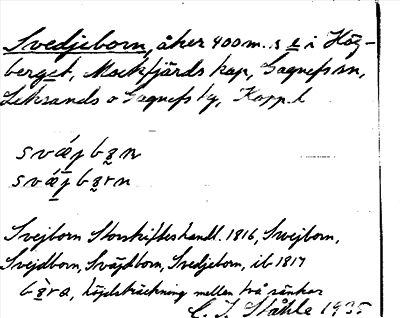 Svedjeborn, åker 400 m. s ę i Hög-
berget, Mockfjärds kap, Gagnefs sn,
Leksands o Gagnefs tg, Kopp. l
svǽj bz̥n
svǽj bz̥rn
Svejborn Storskifteshandl. 1816, Swejborn,
Svejdborn, Sväjtborn, Svedjeborn, ib 1817
höjdsträckning mellan två sänkor
C. I. Ståhle 1935